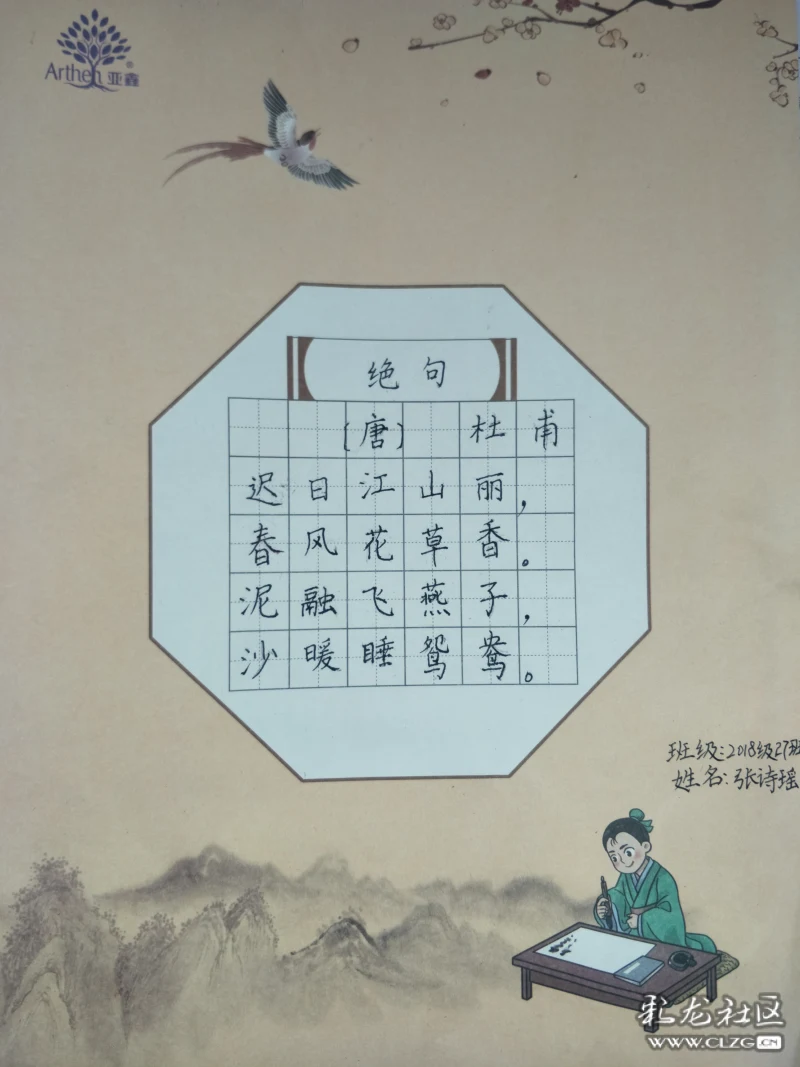 Arthen 亚鑫®
绝句
[唐] 杜甫
迟日江山丽，
春风花草香。
泥融飞燕子，
沙暖睡鸳鸯。
班级:2018级27班
姓名:张诗瑶
彩龙社区
WWW.CLZG.CN